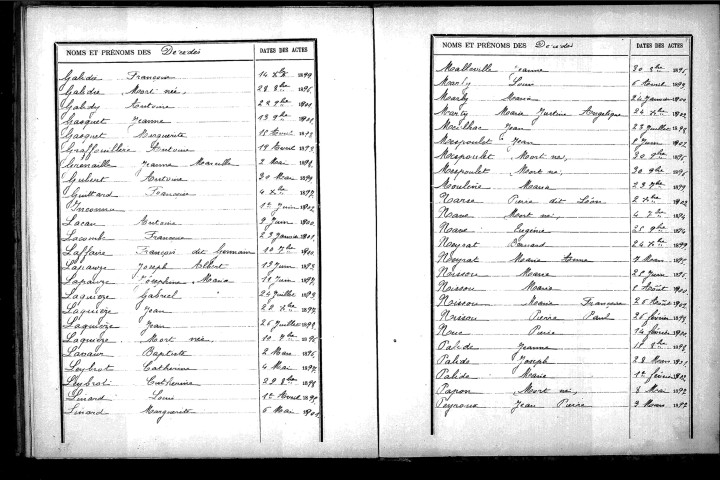 NOMS ET PRÉNOMS DES Décédés DATES DES ACTES
Galidie Françoise 14 Xbre 1899
Galidie Mort né, 28 8bre 1895
Galidy Antoine 1901
Gasquet Jeanne 1901
Gasquet Marguerite 18 Avril 1899
Graffouillère Antoine 19 Avril 1893
Grénaille Jeanne Marcelle 2 Mai 1899
Guibert Antoine 30 Mai 1899
Guittard Françoise 4 Xbre 1897
Inconnu 1er Juin 1902
Lacan Antoine 9 Juin 1900
Lacombe Françoise 23 Janvier 1901
Laffaire François dit Germain 1900
Laparge Joseph Albert 19 Juin 1893
Laparge Joséphine Maria 1897
Laquièze Gabriel 24 Juillet 1893
Laquièze Jean 22 Xbre 1897
Laquièze Jean 26 Juillet 1898
Laquièze Mort née 10 1896
Lavaur Baptiste 2 Mars 1896
Leybrot Catherine 4 Mai 1897
Leybrot Catherine 29 8bre 1898
Linard Louis 1er Avril 1895
Linard Marguerite 6 Mai 1901
NOMS ET PRÉNOMS DES Décédés DATES DES ACTES
Malleville Jeanne 20 1895
Marty Louis 6 Avril 1899
Marty Maria 24 Janvier 1900
Marty Maria Justine Angélique 24 Xbre 1902
Meilhac Jean 23 Juillet 1898
Mespoulet Jean 8 Juin 1902
Mespoulet Mort né, 30 1895
Mespoulet Mort né, 30 9bre 1895
Moulène Maria 23 7bre 1899
Narse Pierre dit Léon 2 Xbre 1902
Nave Mort né, 4 7bre 1894
Nave Eugène 25 1894
Neyrat Bernard 24 Xbre 1899
Neyrat Marie Anna 7 Mars 1895
Nissou Marie 25 Juin 1895
Nissou Marie 6 Août 1901
Nissou Marie Françoise 26 Août 1902
Nissou Pierre Paul 26 février 1898
Nuc Pierre 14 février 1900
Palide Jeanne 18 8bre
Palide Joseph 28 Mars 1901
Palide Marie 1er février 1902
Papon Mort né, 8 Mai 1892
Peyroux Jean Pierre 9 Mars 1892